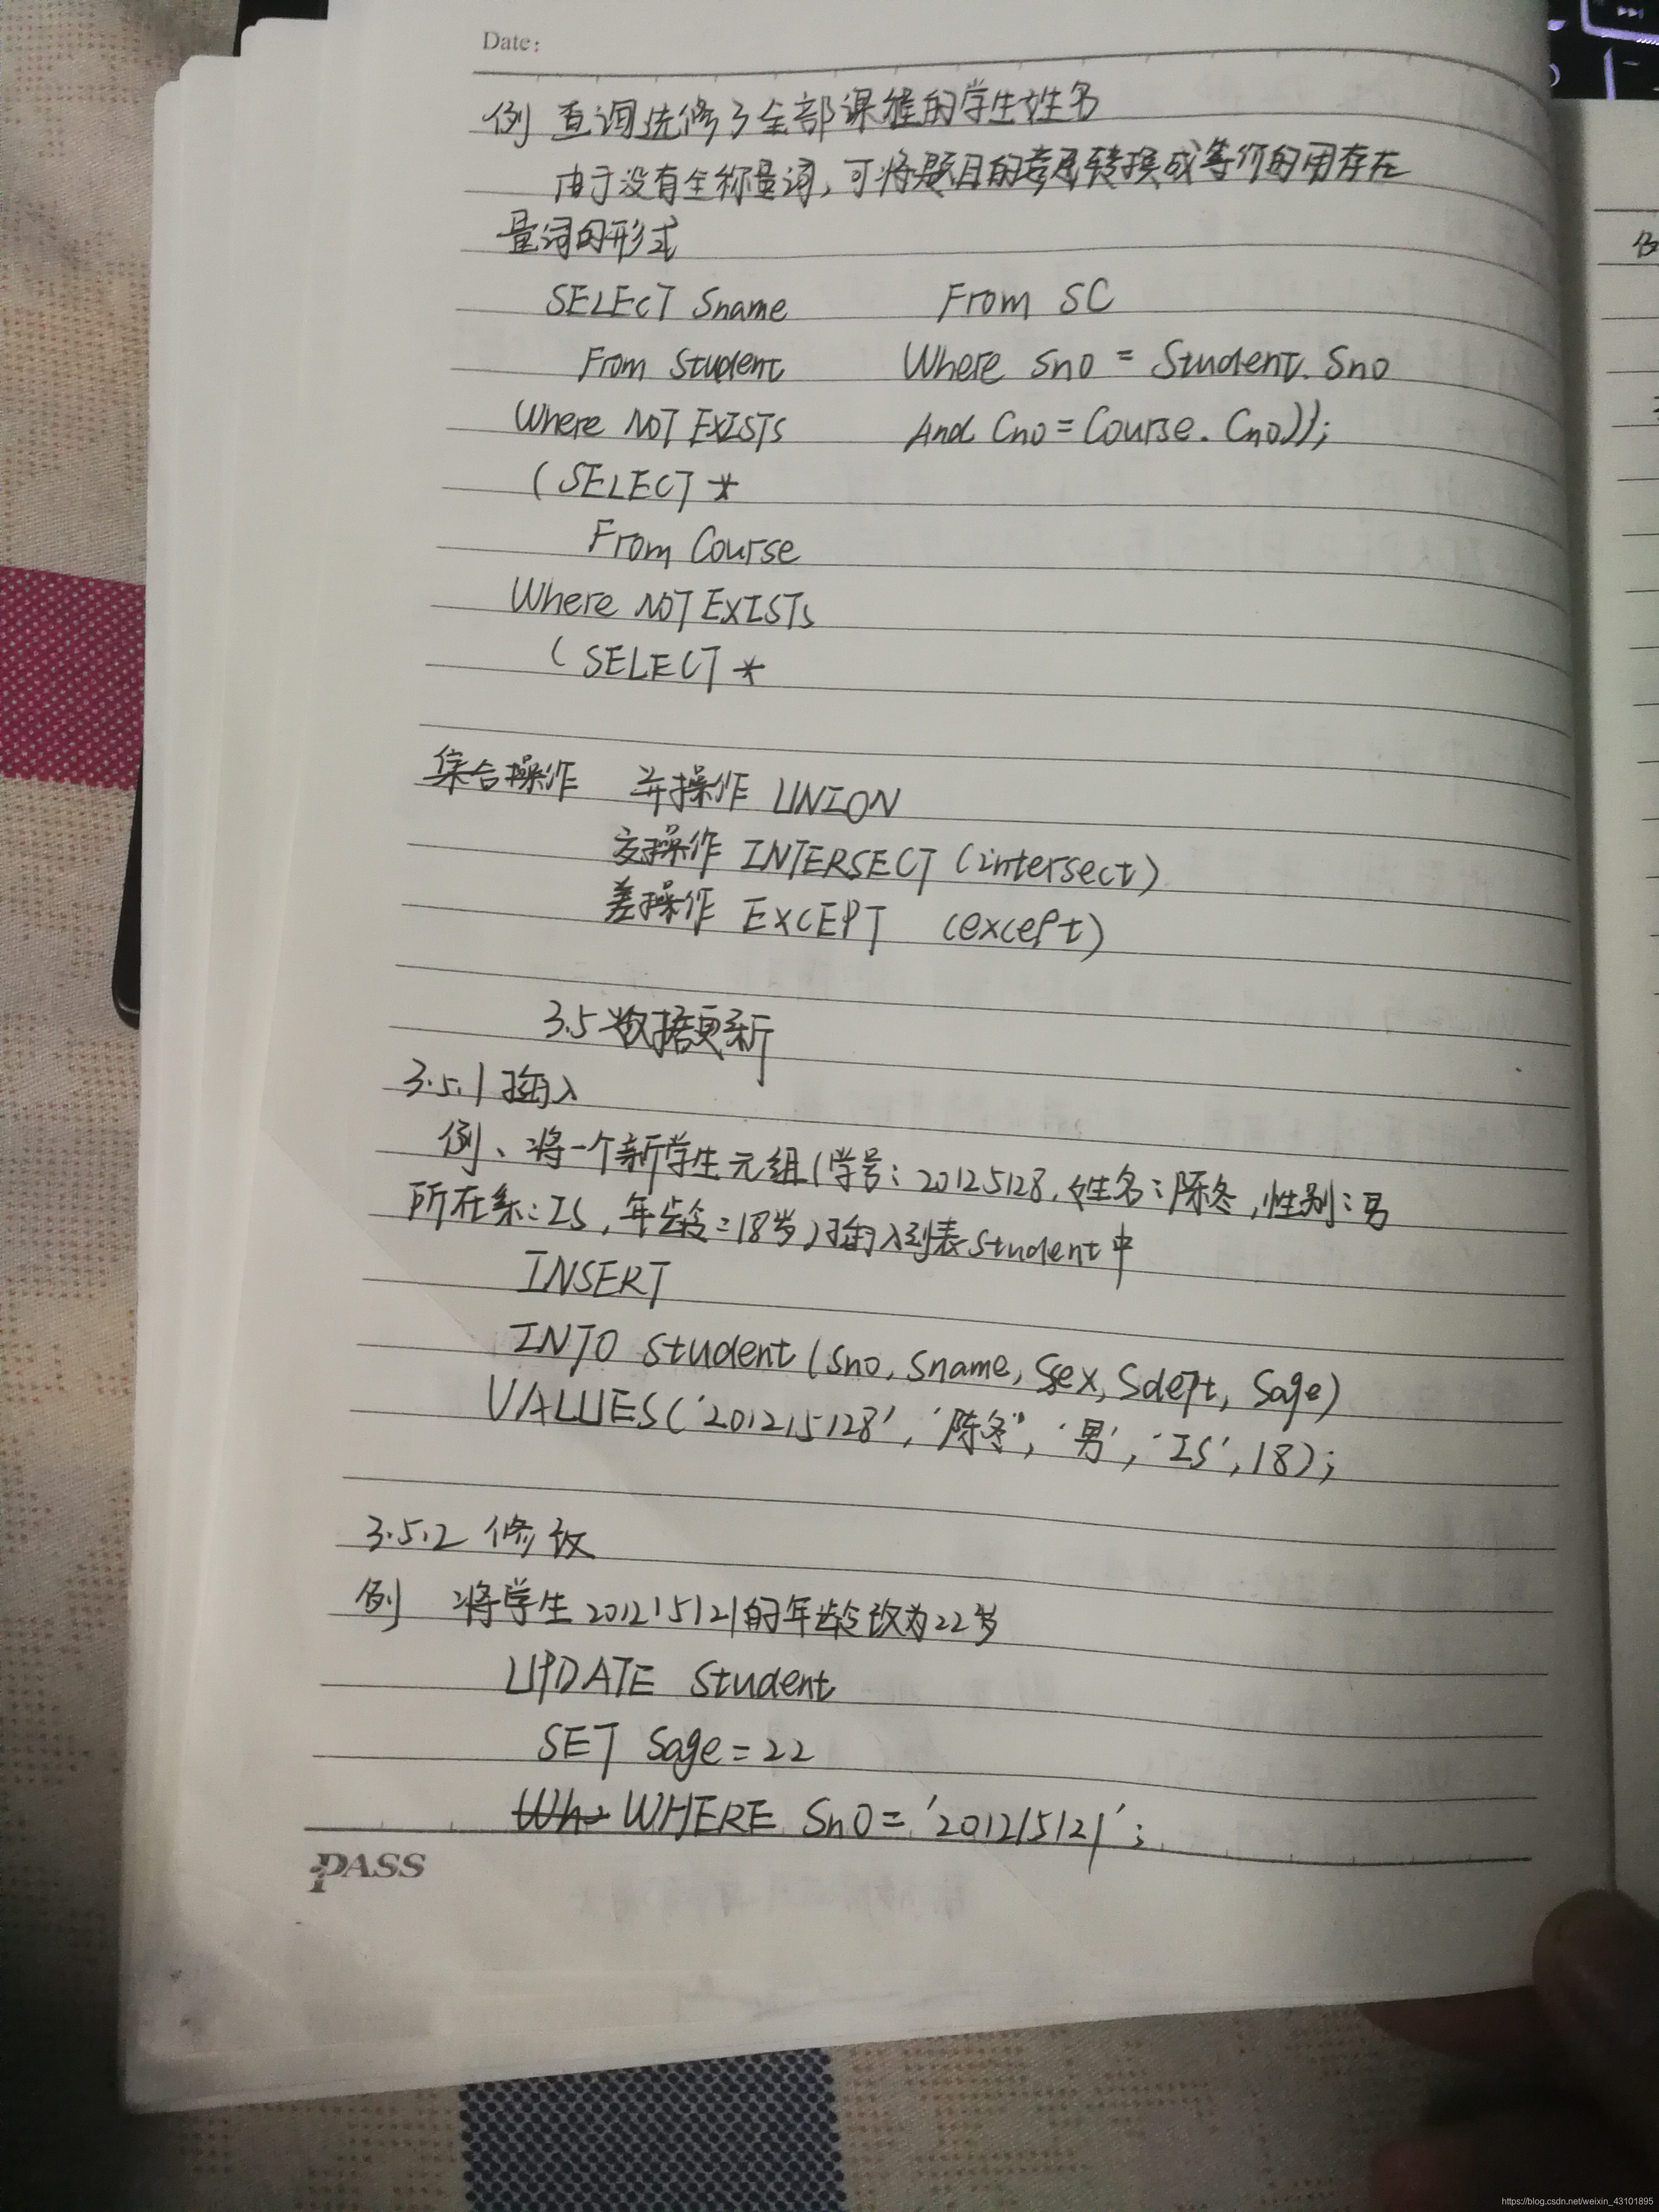 Date:
例 查询选修了全部课程的学生姓名
由于没有全称量词,可将题目的意思转换成等价的用存在
量词的形式
SELECT Sname
From Student
Where NOT EXISTS
(SELECT *
From Course
Where NOT EXISTS
(SELECT *
From SC
Where Sno = Student.Sno
And Cno = Course.Cno));
集合操作 并操作 UNION
交操作 INTERSECT (intersect)
差操作 EXCEPT (except)
3.5 数据更新
3.5.1 插入
例、将一个新学生元组(学号:20125128,姓名:陈冬,性别:男
所在系:IS,年龄:18岁)插入到表Student中
INSERT
INTO Student(Sno, Sname, Ssex, Sdept, Sage)
VALUES('201215128', '陈冬', '男', 'IS', 18);
3.5.2 修改
例 将学生201215121的年龄改为22岁
UPDATE Student
SET Sage=22
WHERE Sno='201215121';
PASS
https://blog.csdn.net/weixin_43101895